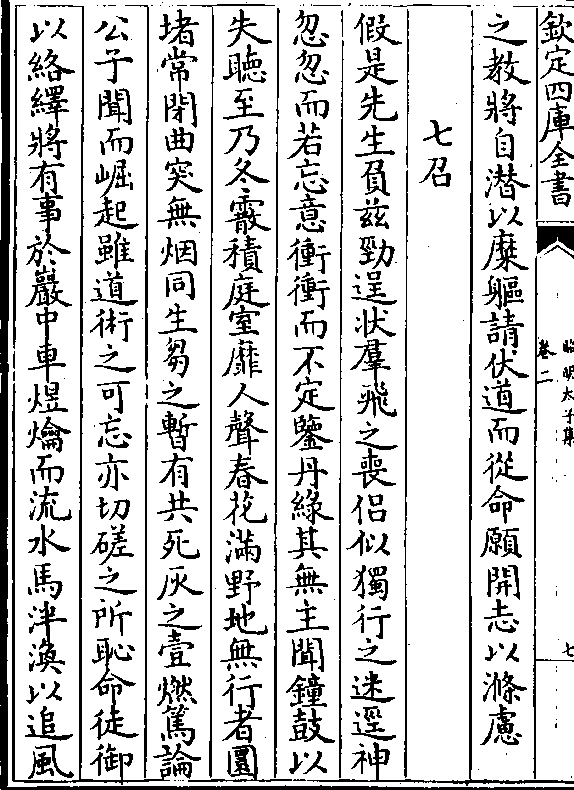 欽定四庫全書
昭明太子集
卷二
七
之教將自潛以糜軀請伏道而從命願開志以滌慮
七召
假是先生負茲勁逞狀羣飛之喪侣似獨行之迷逕神
忽忽而若忘意衝衝而不定鑒丹綠其無主聞鐘鼓以
失聴至乃冬霰積庭室靡人聲春花滿野地無行者圜
堵常閉曲突無烟同生芻之暫有共死灰之壹燃篤論
公子聞而崛起雖道術之可忘亦切磋之所恥命徒御
以絡繹將有事於巖中車煜爚而流水馬泮渙以追風